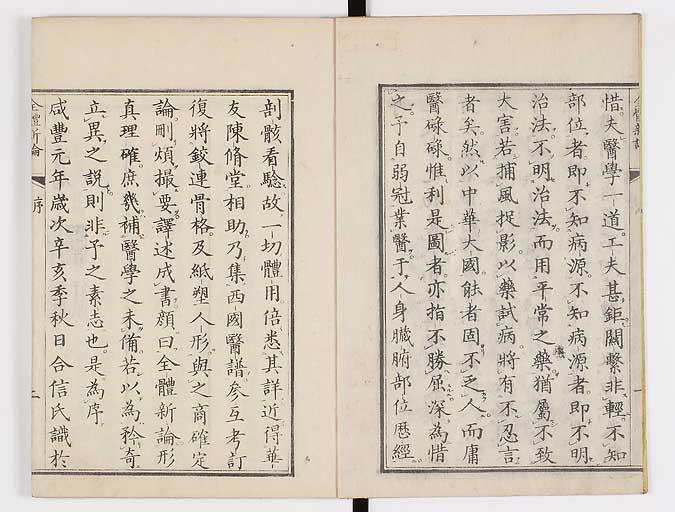 惜夫醫學一道工夫甚鉅關繫非輕不知
部位者即不知病源不知病源者即不明
治法不明治法而用平常之藥猶屬不致
大害若捕風捉影以藥試病將有不忍言
者矣然以中華大國能者固不乏人而庸
醫碌碌惟利是圖者亦指不勝屈深為惜
之予自弱冠業醫于人身臟腑部位歷經
剖骸看驗故一切體用倍悉其詳近得華
友陳脩堂相助乃集西國醫譜參互考訂
復將鉸連骨格及紙塑人形與之商確定
論刪煩撮要譯述成書顏曰全體新論形
真理確庶幾補醫學之未備若以為矜奇
立異之說則非予之素志也是為序
咸豐元年歲次辛亥季秋日合信氏識於
全體新論
序
二